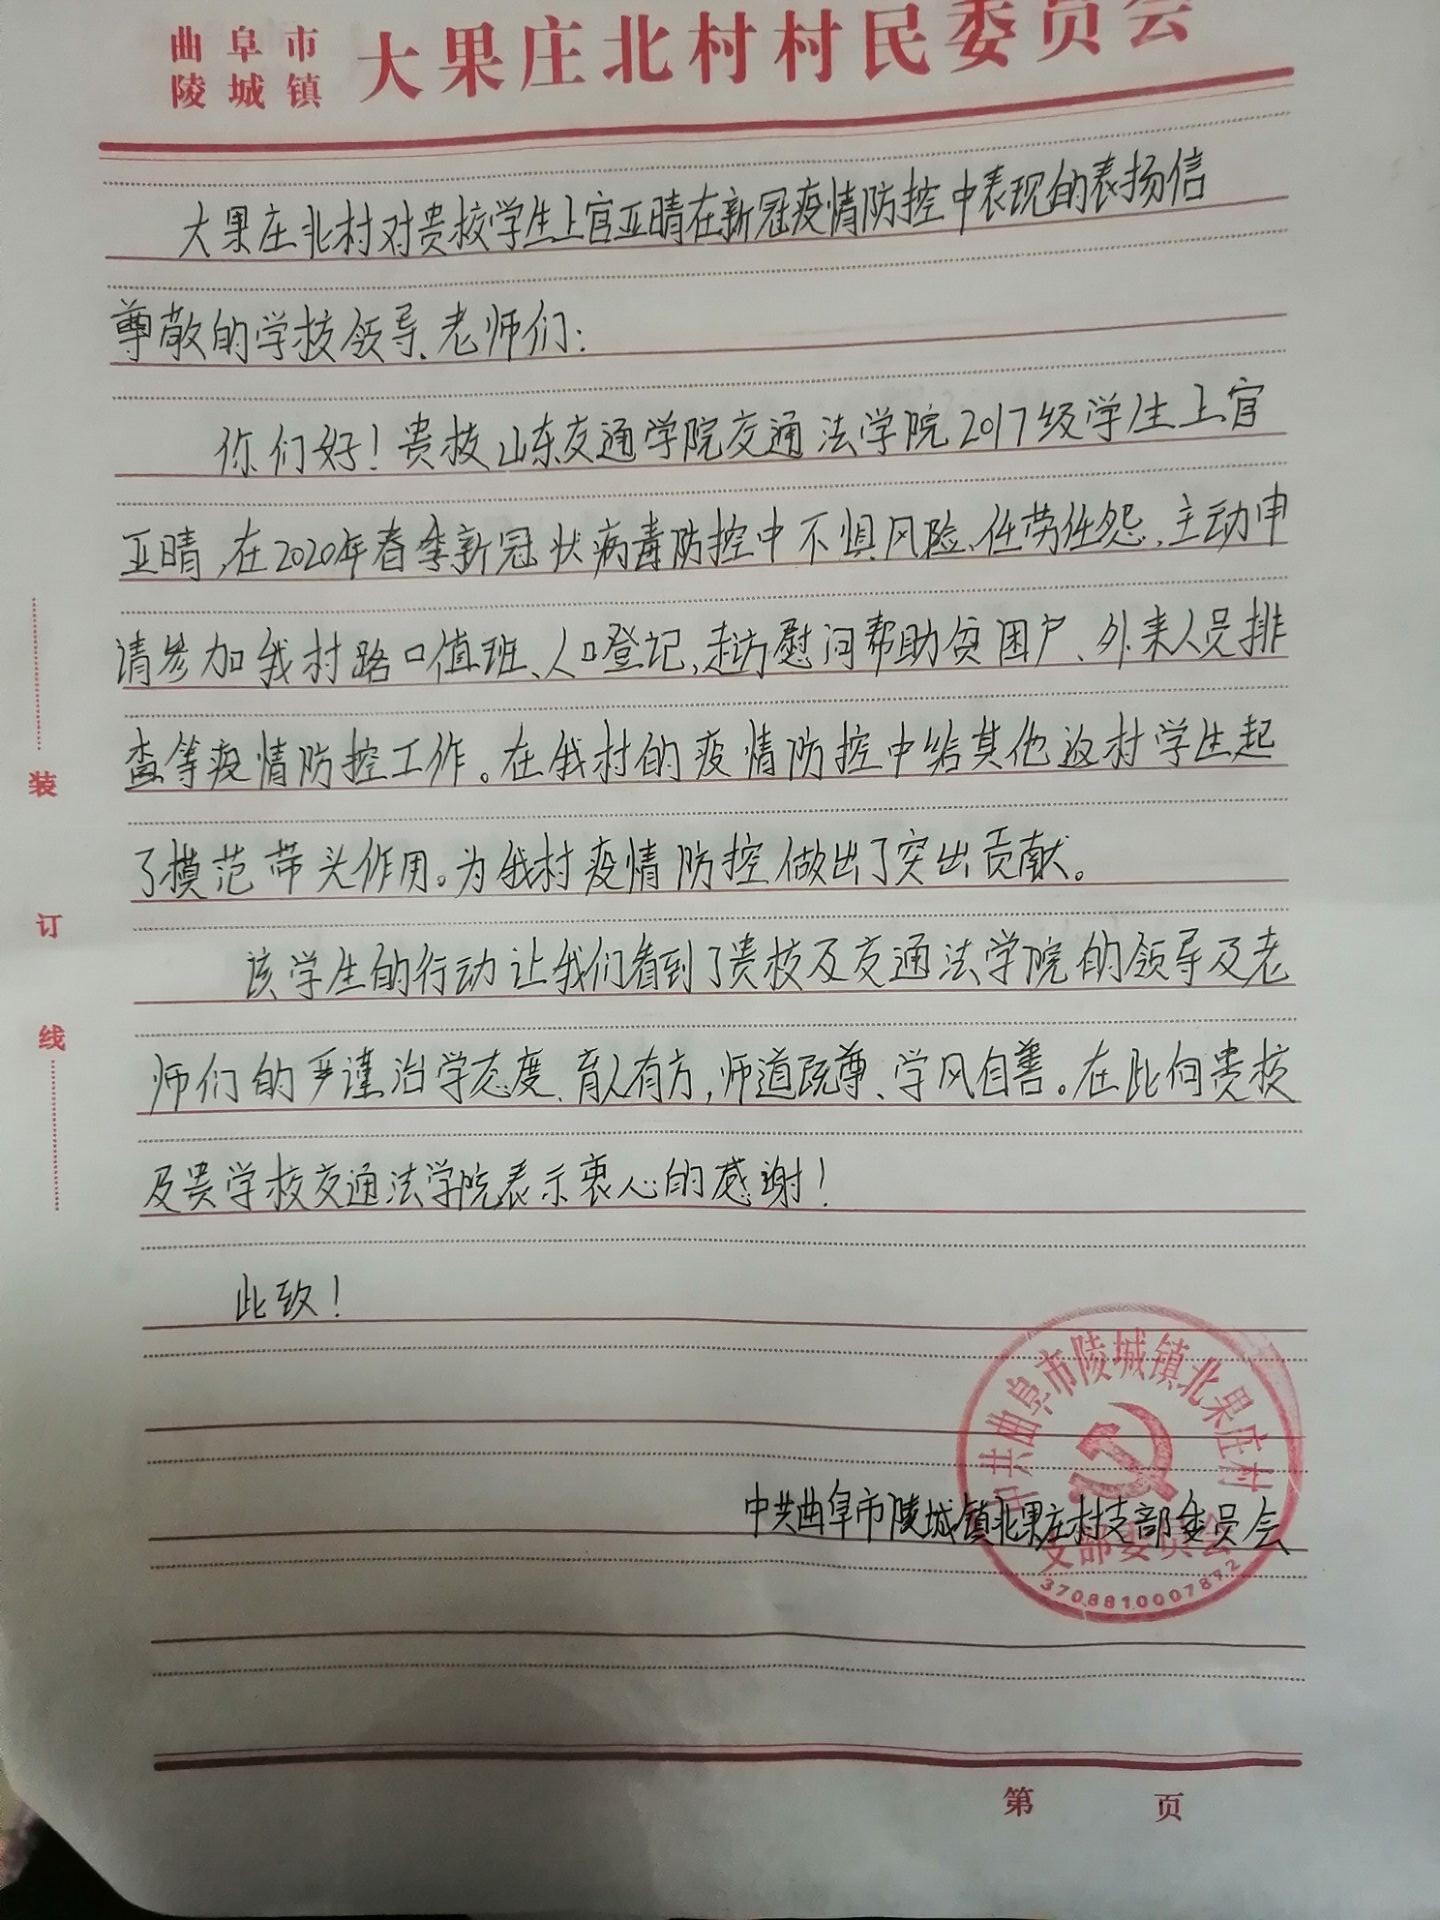 曲阜市
陵城镇
大果庄北村村民委员会
大果庄北村对贵校学生上官亚晴在新冠疫情防控中表现的表扬信
尊敬的学校领导、老师们：
你们好！贵校山东交通学院交通法学院2017级学生上官
亚晴,在2020年春季新冠状病毒防控中不惧风险、任劳任怨,主动申
请参加我村路口值班、人口登记,走访慰问帮助贫困户、外来人员排
查等疫情防控工作。在我村的疫情防控中给其他返村学生起
了模范带头作用。为我村疫情防控做出了突出贡献。
该学生的行动让我们看到了贵校及交通法学院的领导及老
师们的严谨治学态度、育人有方,师道既尊、学风自善。在此向贵校
及贵学校交通法学院表示衷心的感谢！
此致！
中共曲阜市陵城镇北果庄村支部委员会
中共曲阜市陵城镇北果庄村
支部委员会
3708810007872
装
订
线
第 页